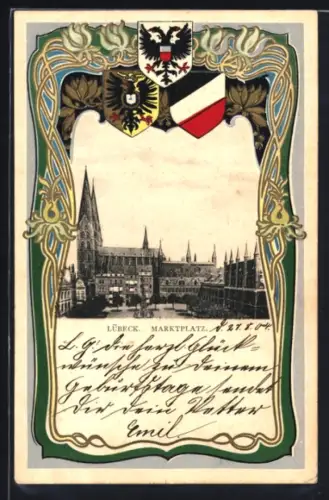 LÜBECK. MARKTPLATZ.
d. 27.8.04.
L. G. die herzl. Glück-
wünsche zu Deinem
Geburtstage sendet
Dir dein Vetter
Emil.